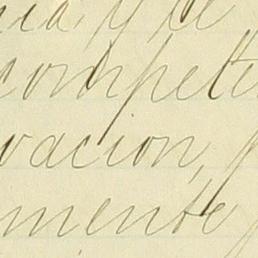 cia, y
compete
vacion,
mente